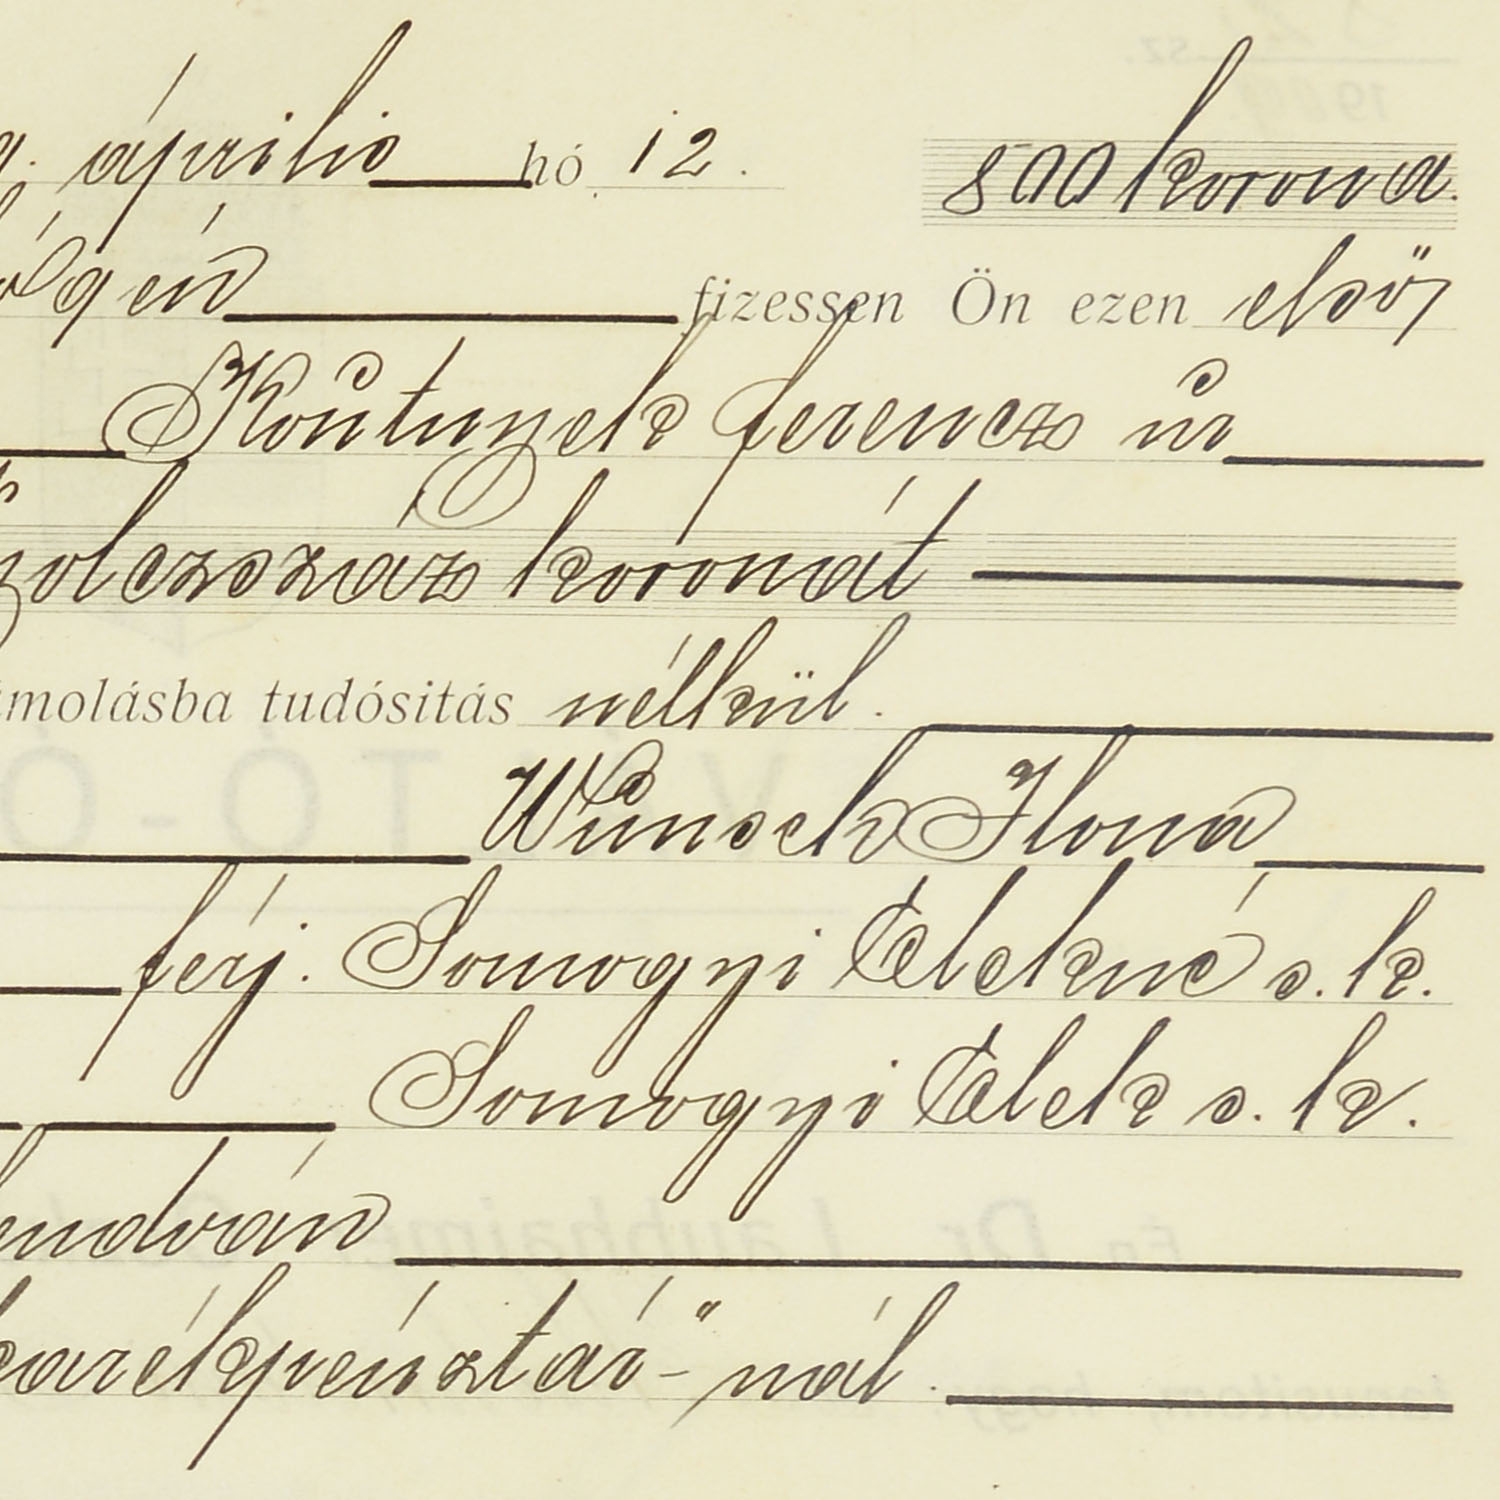 április hó 12. 800 korona.
végén fizessen Ön ezen első
Koutnyek Ferencz úr
yolczszáz koronát
ámolásba tudósitás nélkül.
Wunsch Ilona
férj. Somogyi Elekné s. k.
Somogyi Elek s. k.
endván
karékpénztár"-nál.